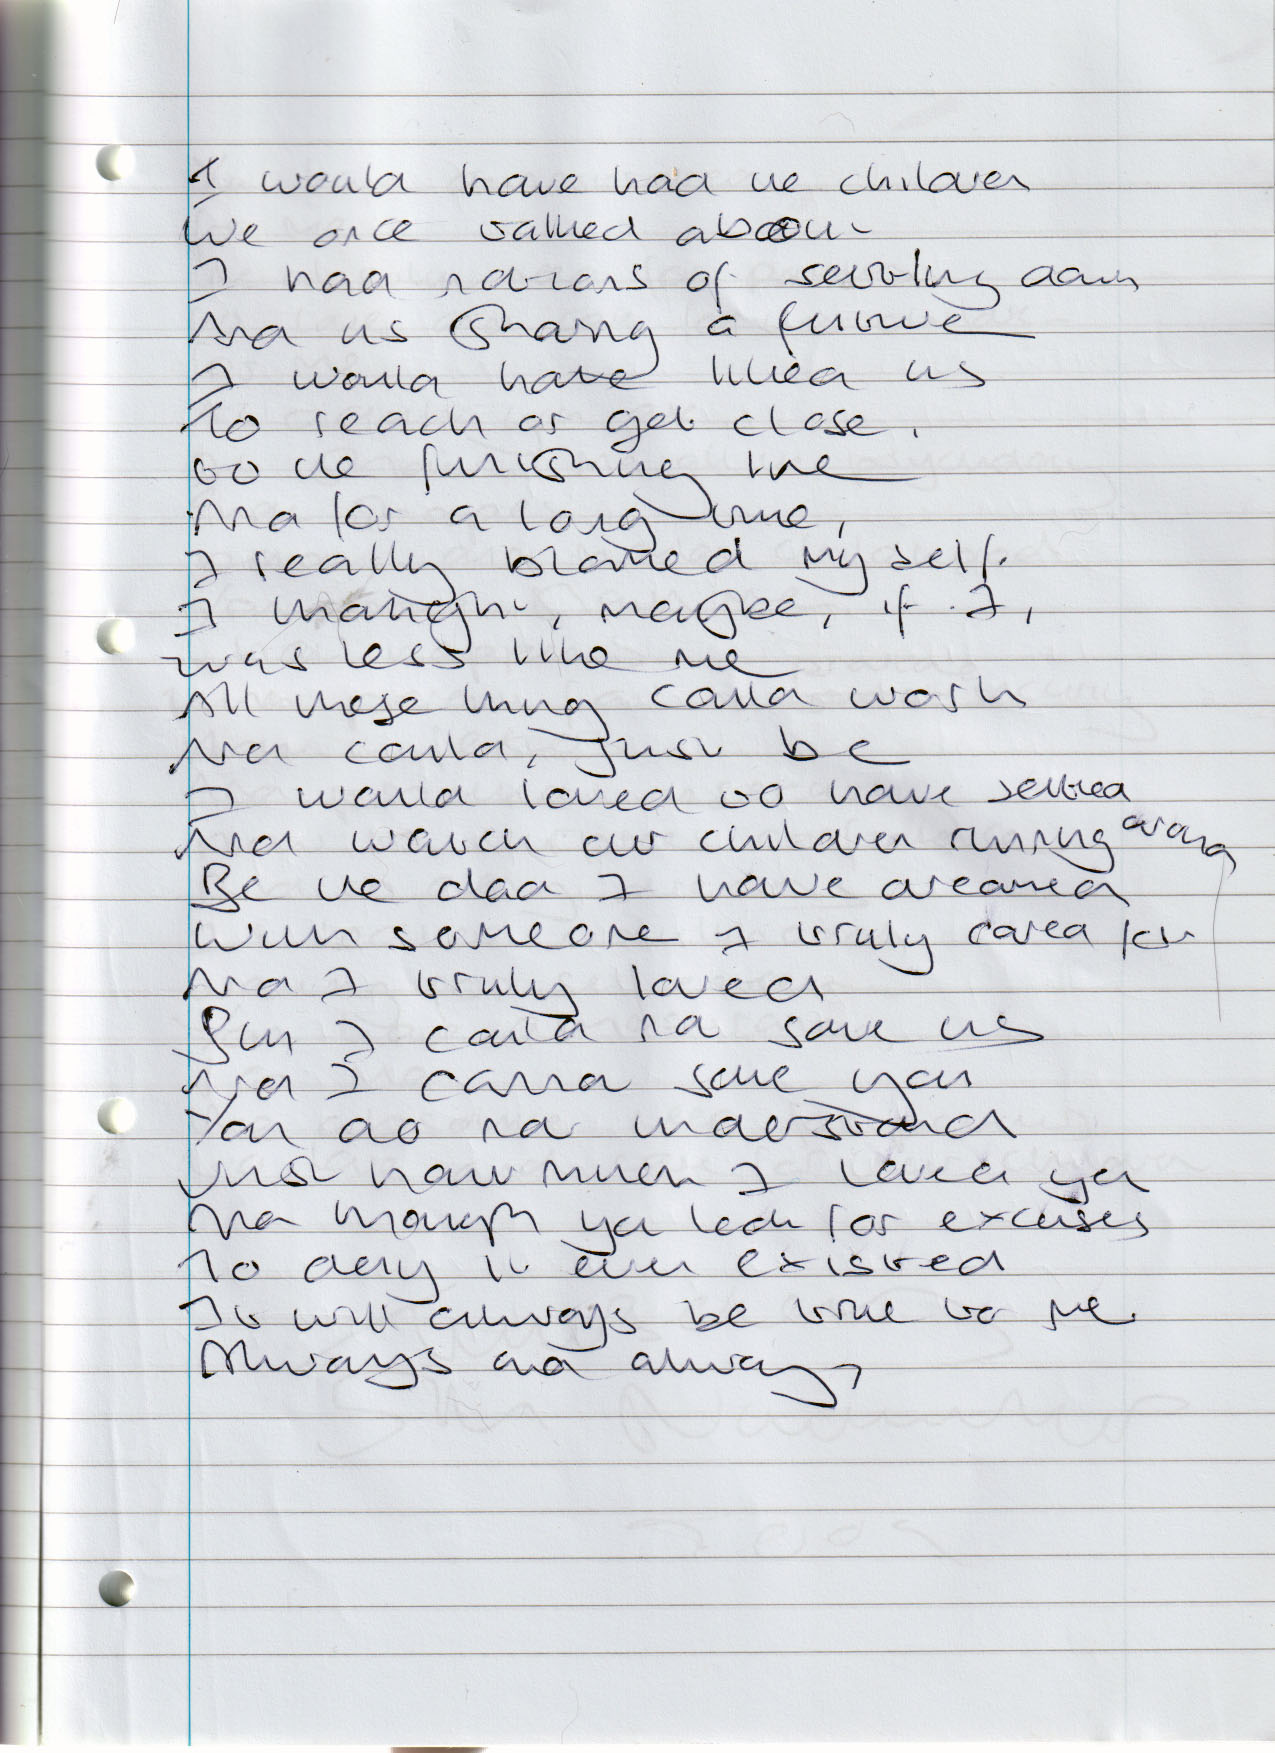 I would have had the children
We once talked about
I had notions of settling down
And us sharing a future
I would have liked us
To reach or get close,
to the finishing line
And for a long time,
I really blamed myself.
I thought, maybe, if I,
was less like me
All these thing could work
And could, just be
I would loved to have settled
And watch our children running around
Be the dad I have dreamed
With someone I truly cared for
And I truly loved
But I could not save us
And I cannot save you
You do not understand
Just how much I loved you
And though you look for excuses
To deny it ever existed
It will always be true to me
Always and always,